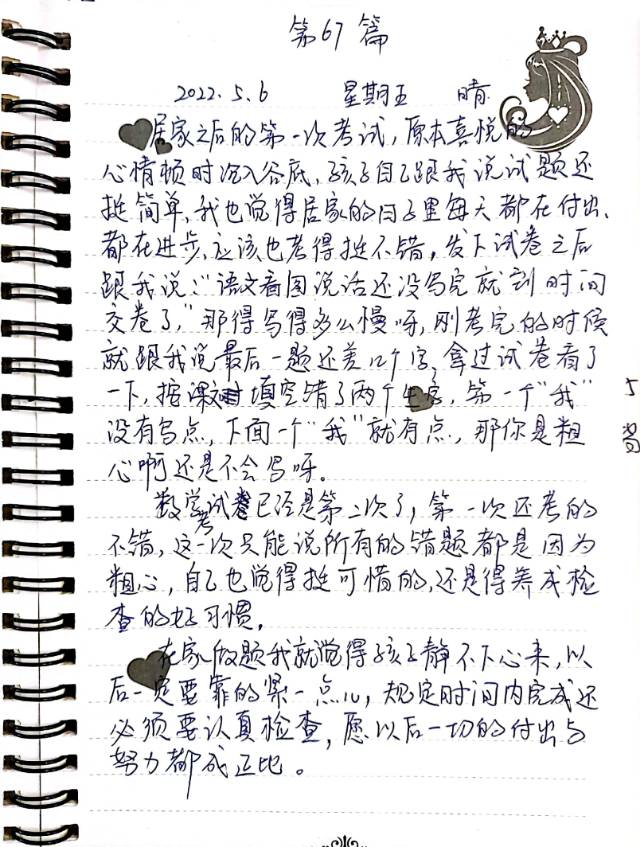 第67篇
2022.5.6 星期五 晴
居家之后的第一次考试,原本喜悦的
心情顿时沉入谷底,孩子自己跟我说试题还
挺简单,我也觉得居家的日子里每天都在付出、
都在进步,应该也考得挺不错,发下试卷之后
跟我说:"语文看图说话还没写完就到时间
交卷了,"那得写得多么慢呀,刚考完的时候
就跟我说最后一题还差几个字,拿过试卷看了
一下,按课文填空错了两个生字,第一个"我"
没有写点,下面一个"我"就有点,那你是粗
心啊还是不会写呀。
数学试卷已经是第二次了,第一次还考的
考
不错,这一次只能说所有的错题都是因为
粗心,自己也觉得挺可惜的,还是得养成检
查的好习惯,
在家做题我就觉得孩子静不下心来,以
后一定要靠的紧一点儿,规定时间内完成还
必须要认真检查,愿以后一切的付出与
努力都成正比。